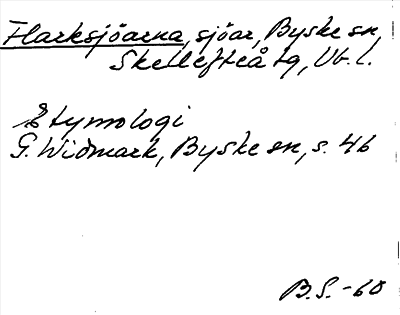 Flarksjöarna, sjöar, Byske sn,
Skellefteå tg, Vb. l.
Etymologi
G. Widmark, Byske sn, s. 46
B.S.-60